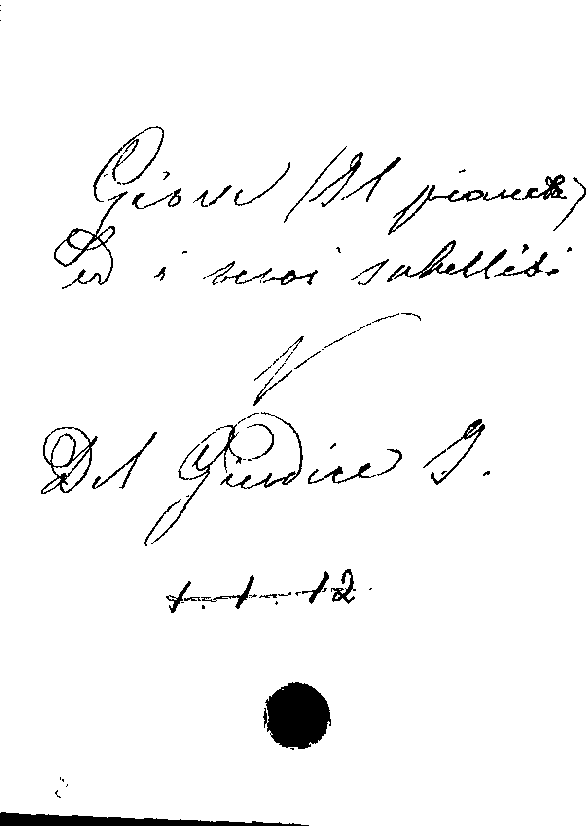 Giove (Il pianeta)
ed i suoi satelliti
V
Del Giudice G.
1.1.12